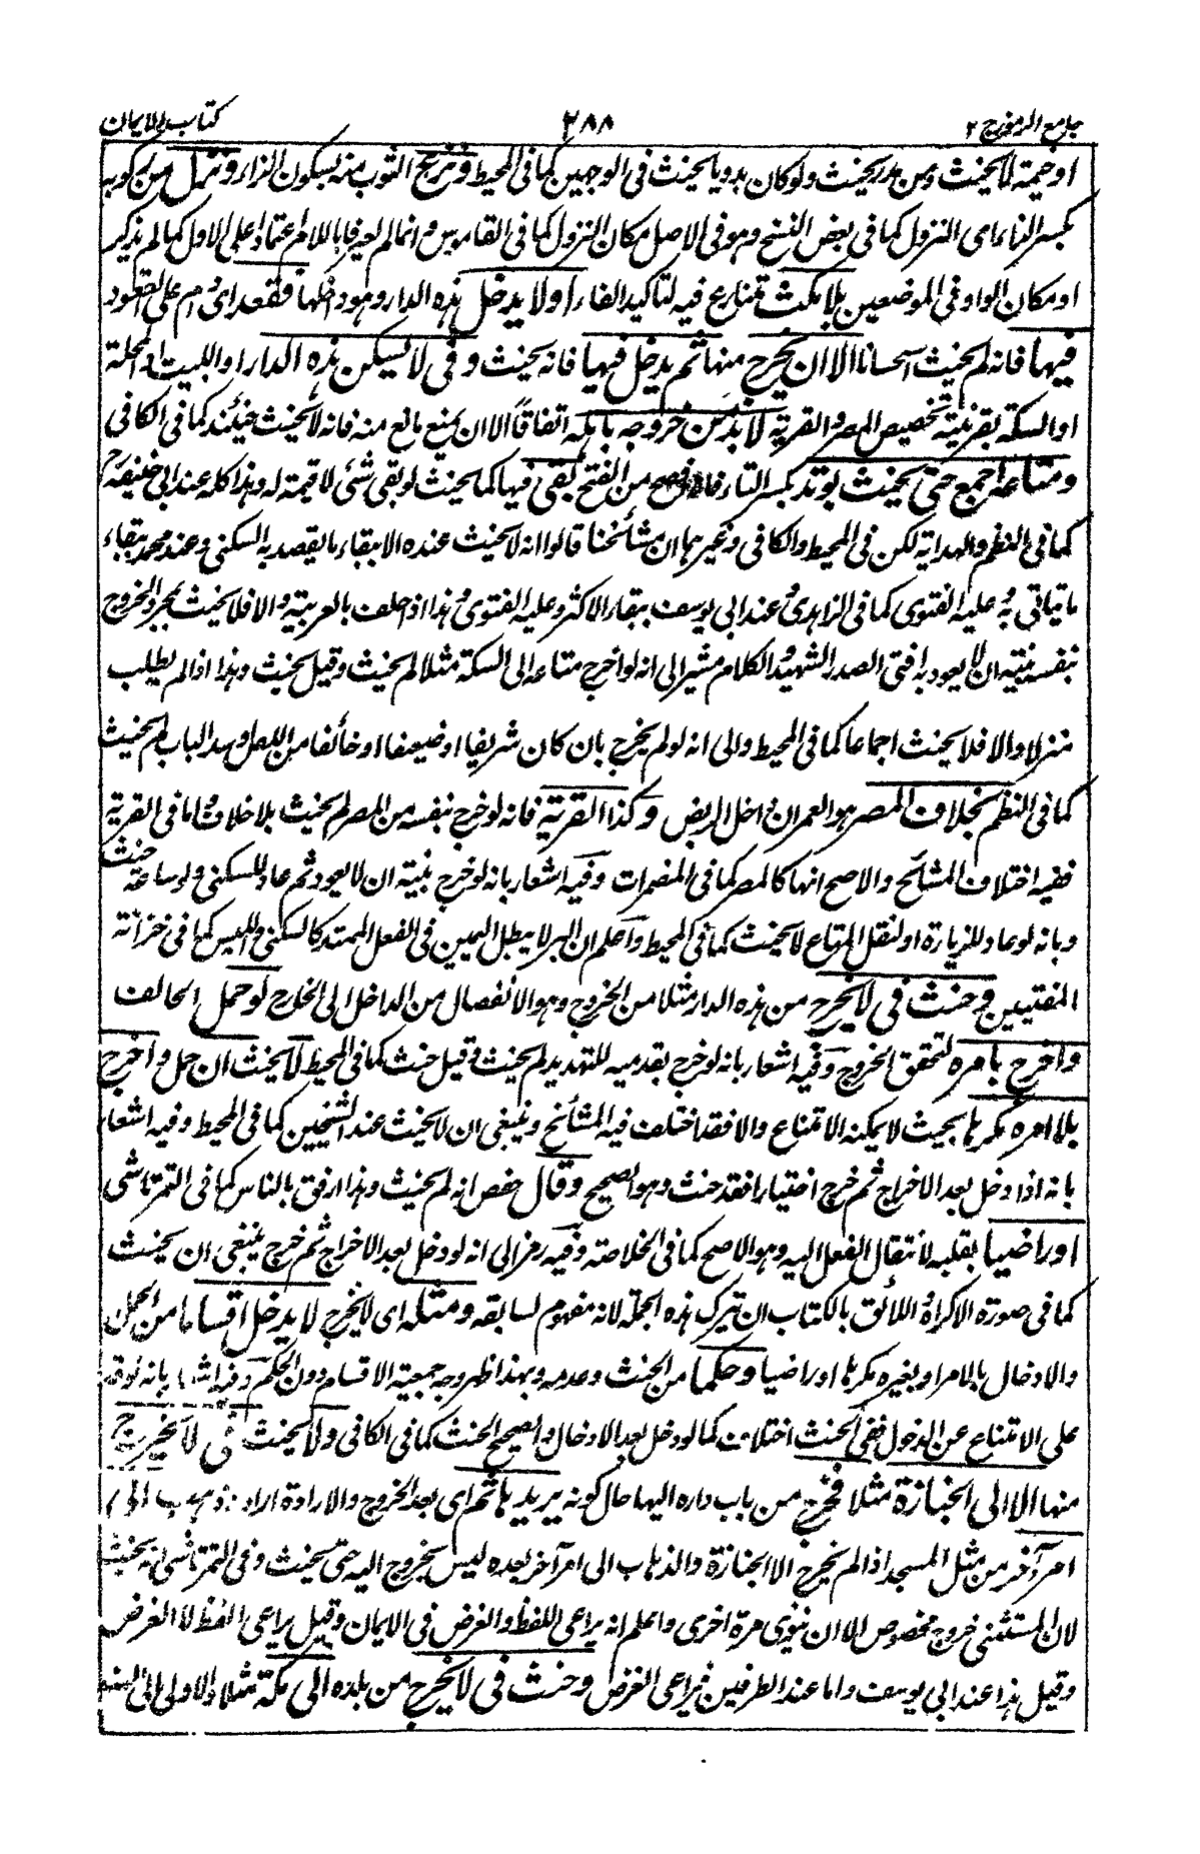 جامع الرموز ج ٢
٢٨٨
كتاب الايمان
او خيمة لا يحنث ومن مدر يحنث ولو كان بدويا يحنث فى الوجهين كما فى المحيط ونزع الثوب منه بسكون الزاء ونزل من ركوبه
بكسر النا اى النزول كما فى بعض النسخ وهو فى الاصل مكان النزول كما فى القاموس وانما لم يعرفها باللام اعتمادا على الاول كما لم يذكر
او مكان الواو فى الموضعين بلا مكث تنازع فيه لتاكيد الفاء اولا يدخل هذه الدار وهو داخلها فقعد اى دام على القعود
فيها فانه لم يحنث استحسانا الا ان يخرج منها ثم يدخل فيها فانه يحنث وفى لا يسكن هذه الدار او البيت او المحلة
او السكة بقرينة تخصيص المصر والقرية لا بد من خروجه باهله اتفاقا الا ان يمنع مانع منه فانه لا يحنث حينئذ كما فى الكافى
ومتاعه اجمع حتى يحنث بوتد بكسر التاء من الفتح بقى فيها كما يحنث لو بقى شئ لا قيمة له وهذا كله عند ابى حنيفة رح
كما فى النظم والهداية لكن فى المحيط والكافى وغيرهما ان مشائخنا قالوا انه لا يحنث عنده الا ببقاء ما يقصد به السكنى وعند محمد ببقاء
ما يتاتى به وعليه الفتوى كما فى الزاهدى وعند ابى يوسف ببقاء الاكثر وعليه الفتوى وهذا اذا حلف بالعربية والا فلا يحنث بمجرد الخروج
بنفسه بنية ان لا يعود به افتى الصدر الشهيد والكلام مشير الى انه لو اخرج متاعه الى السكة مثلا لم يحنث وقيل يحنث وهذا اذا لم يطلب
منزلا والا فلا يحنث اجماعا كما فى المحيط والى انه لو لم يخرج بان كان شريفا او ضعيفا او خائفا من اللص او سد الباب لم يحنث
كما فى النظم بخلاف المصر هو العمران داخل الربض وكذا القرية فانه لو خرج بنفسه من المصر لم يحنث بلا خلاف واما فى القرية
ففيه اختلاف المشائخ والاصح انها كالمصر كما فى المضمرات وفيه اشعار بانه لو خرج بنية ان لا يعود ثم عاد للسكنى ولو ساعة حنث
وبانه لو عاد للزيارة او لنقل المتاع لا يحنث كما فى المحيط واعلم ان البر لا يبطل اليمين فى الفعل الممتد كالسكنى واللبس كما فى خزانة
المفتيين وحنث فى لا يخرج من هذه الدار مثلا من الخروج وهو الانفصال من الداخل الى الخارج لو حمل الحالف
واخرج بامره لتحقق الخروج وفيه اشعار بانه لو خرج بقدميه للتهديد لم يحنث وقيل حنث كما فى المحيط لا يحنث ان حمل واخرج
بلا امره مكرها بحيث لا يمكنه الامتناع والا فقد اختلف فيه المشائخ وينبغى ان لا يحنث عند الشيخين كما فى المحيط وفيه اشعار
بانه اذا دخل بعد الاخراج ثم خرج اختيارا فقد حنث وهو الصحيح وقال حفص انه لم يحنث وهذا ارفق بالناس كما فى التمرتاشى
او راضيا بقلبه لانتقال الفعل اليه وهو الاصح كما فى الخلاصة وفيه رمز الى انه لو دخل بعد الاخراج ثم خرج ينبغى ان يحنث
كما فى صورة الاكراه واللائق بالكتاب ان يترك هذه الجملة لانه مفهوم لسابقه ومثله اى لا يخرج لا يدخل اقساما من الحمل
والادخال بالامر او بغيره مكرها او راضيا وحكما من الحنث وعدمه وبهذا ظهر وجه جمعية الاقسام دون الحكم وفيه اشعار بانه لو قدر
على الامتناع عن الدخول ففى الحنث اختلاف كما لو دخل بعد الادخال والصحيح الحنث كما فى الكافى ولا يحنث فى لا يخرج
منها الا الى الجنازة مثلا فخرج من باب داره اليها حال كونه يريدها ثم اى بعد الخروج والارادة اراد ذهب الى
امر آخر من مثل المسجد اذ لم يخرج الا الجنازة والذهاب الى امر آخر بعده ليس بخروج اليه حتى يحنث وفى التمرتاشى انه يحنث
لان المستثنى خروج مخصوص الا ان ينوى مرة اخرى واعلم انه يراعى اللفظ والغرض فى الايمان وقيل يراعى اللفظ لا الغرض
وقيل هذا عند ابى يوسف واما عند الطرفين فيراعى الغرض وحنث فى لا يخرج من بلده الى مكة مثلا والاولى الى